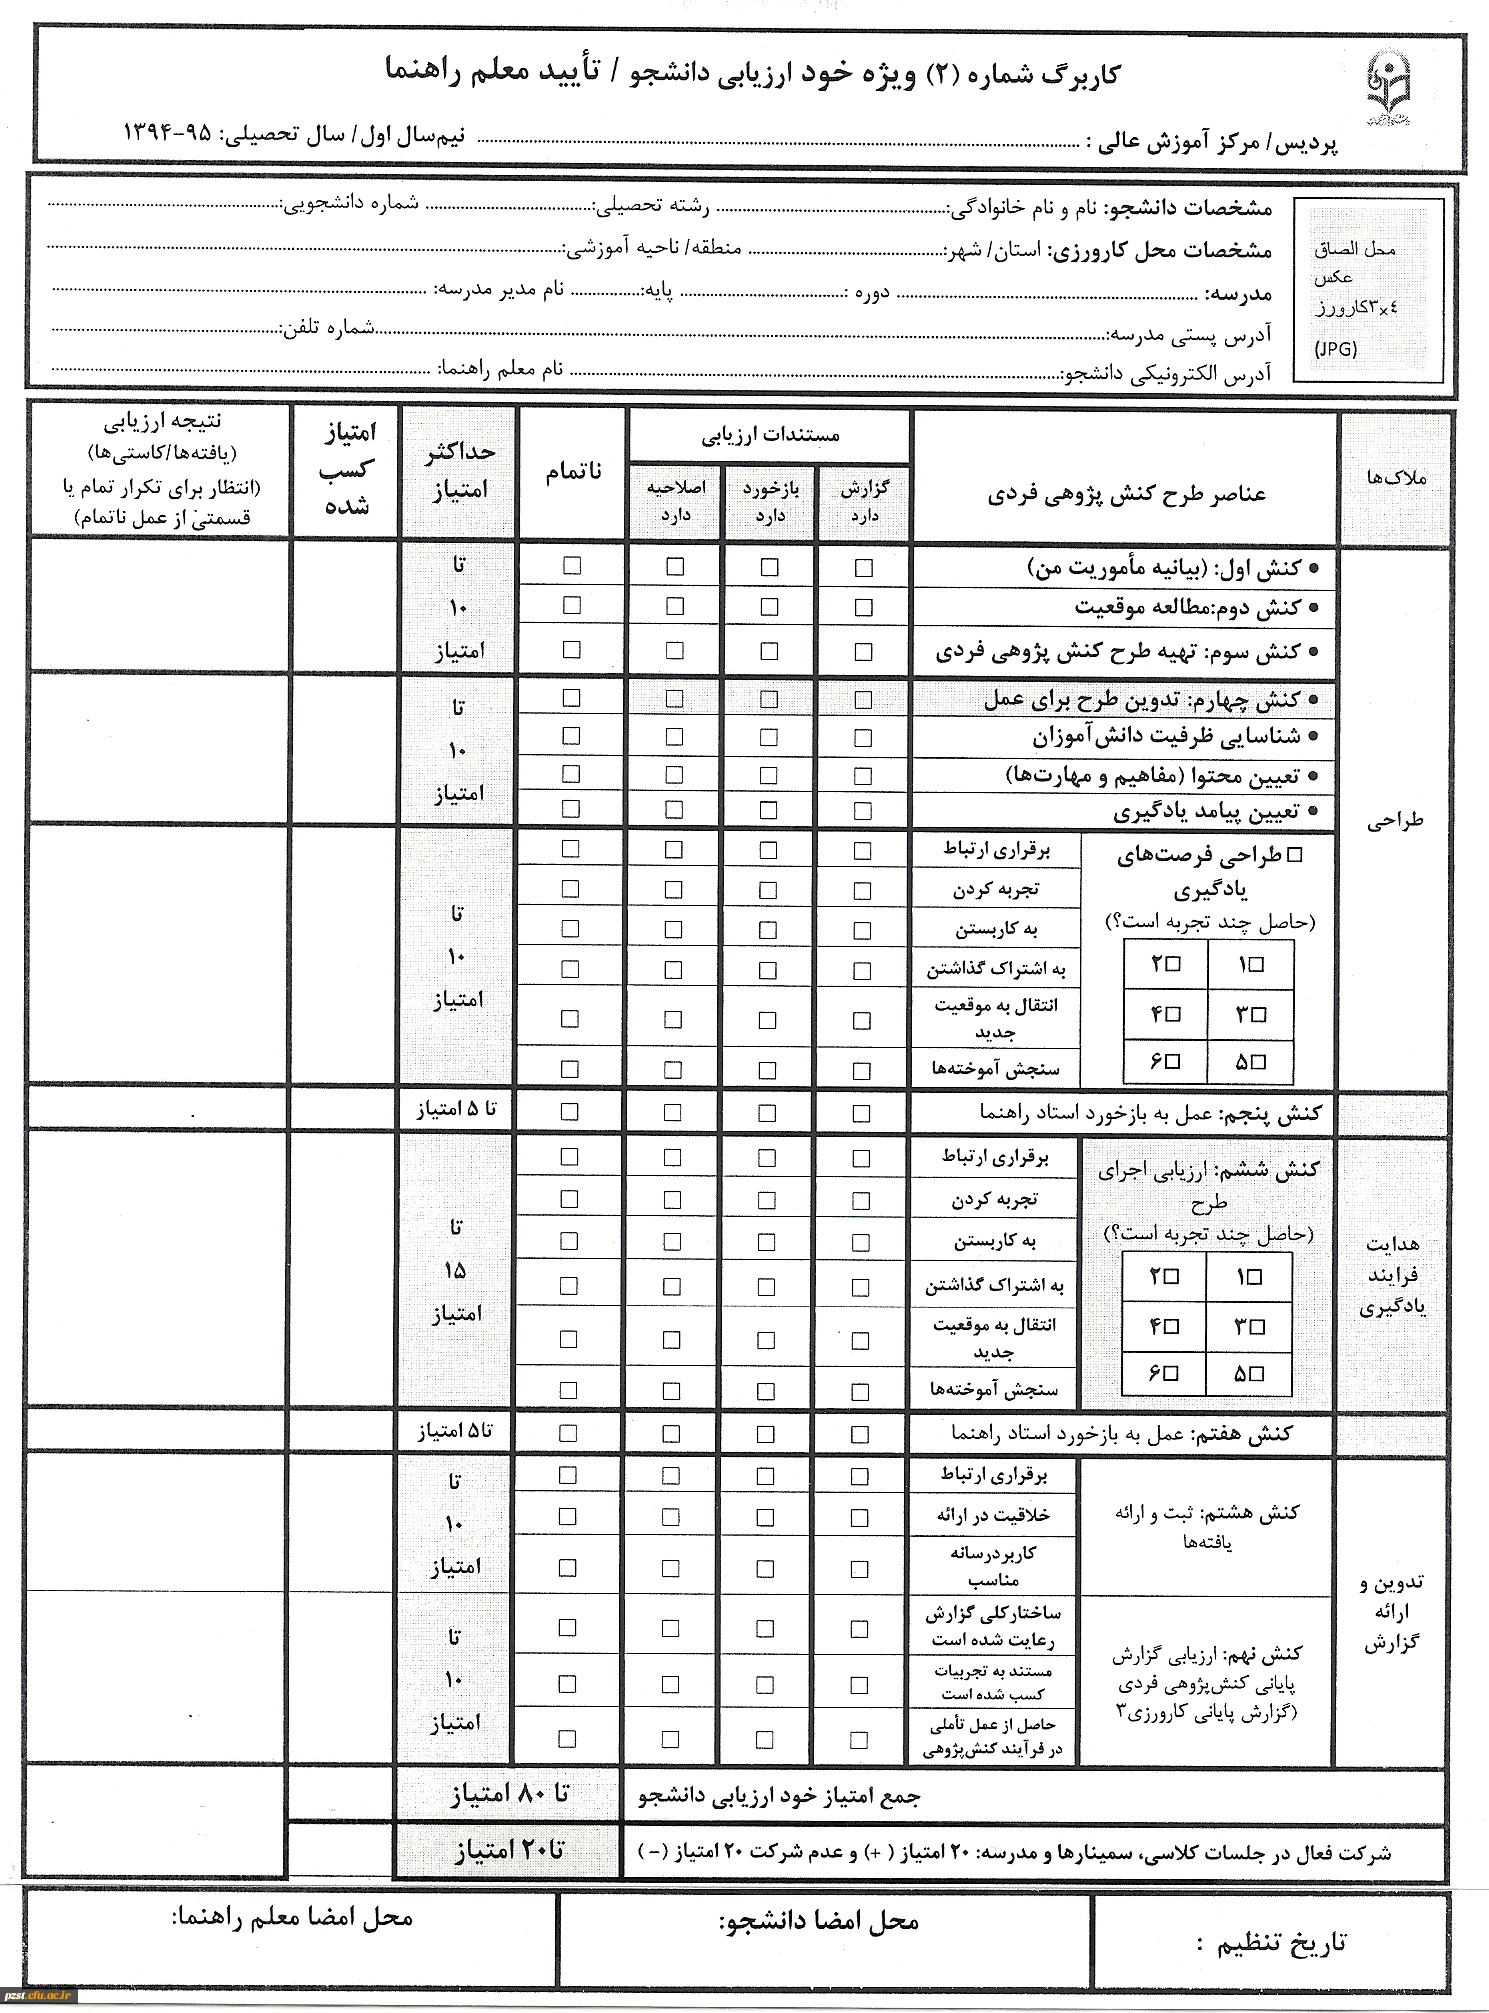 کاربرگ شماره (۲) ویژه خود ارزیابی دانشجو / تأیید معلم راهنما
پردیس/ مرکز آموزش عالی : ........ نیم‌سال اول/ سال تحصیلی: ۹۵-۱۳۹۴
محل الصاق
عکس
۳×۴کارورز
(JPG)
مشخصات دانشجو: نام و نام خانوادگی:........ رشته تحصیلی:........ شماره دانشجویی:........
مشخصات محل کارورزی: استان/ شهر:........ منطقه/ ناحیه آموزشی:........
مدرسه: ........ دوره :........ پایه:........ نام مدیر مدرسه: ........
آدرس پستی مدرسه:........شماره تلفن:........
آدرس الکترونیکی دانشجو:........ نام معلم راهنما: ........
ملاک‌ها
عناصر طرح کنش پژوهی فردی
مستندات ارزیابی
گزارش
دارد
بازخورد
دارد
اصلاحیه
دارد
ناتمام
حداکثر
امتیاز
امتیاز
کسب
شده
نتیجه ارزیابی
(یافته‌ها/کاستی‌ها)
(انتظار برای تکرار تمام یا
قسمتی از عمل ناتمام)
طراحی
• کنش اول: (بیانیه مأموریت من) □ □ □ □
• کنش دوم:مطالعه موقعیت □ □ □ □
• کنش سوم: تهیه طرح کنش پژوهی فردی □ □ □ □
تا
۱۰
امتیاز
• کنش چهارم: تدوین طرح برای عمل □ □ □ □
• شناسایی ظرفیت دانش‌آموزان □ □ □ □
• تعیین محتوا (مفاهیم و مهارت‌ها) □ □ □ □
• تعیین پیامد یادگیری □ □ □ □
تا
۱۰
امتیاز
□ طراحی فرصت‌های
یادگیری
(حاصل چند تجربه است؟)
□۱ □۲
□۳ □۴
□۵ □۶
برقراری ارتباط □ □ □ □
تجربه کردن □ □ □ □
به کاربستن □ □ □ □
به اشتراک گذاشتن □ □ □ □
انتقال به موقعیت
جدید □ □ □ □
سنجش آموخته‌ها □ □ □ □
تا
۱۰
امتیاز
کنش پنجم: عمل به بازخورد استاد راهنما □ □ □ □ تا ۵ امتیاز
هدایت
فرایند
یادگیری
کنش ششم: ارزیابی اجرای
طرح
(حاصل چند تجربه است؟)
□۱ □۲
□۳ □۴
□۵ □۶
برقراری ارتباط □ □ □ □
تجربه کردن □ □ □ □
به کاربستن □ □ □ □
به اشتراک گذاشتن □ □ □ □
انتقال به موقعیت
جدید □ □ □ □
سنجش آموخته‌ها □ □ □ □
تا
۱۵
امتیاز
کنش هفتم: عمل به بازخورد استاد راهنما □ □ □ □ تا۵ امتیاز
تدوین و
ارائه
گزارش
کنش هشتم: ثبت و ارائه
یافته‌ها
برقراری ارتباط □ □ □ □
خلاقیت در ارائه □ □ □ □
کاربردرسانه
مناسب □ □ □ □
تا
۱۰
امتیاز
کنش نهم: ارزیابی گزارش
پایانی کنش‌پژوهی فردی
(گزارش پایانی کارورزی۳
ساختارکلی گزارش
رعایت شده است □ □ □ □
مستند به تجربیات
کسب شده است □ □ □ □
حاصل از عمل تأملی
در فرآیند کنش‌پژوهی □ □ □ □
تا
۱۰
امتیاز
جمع امتیاز خود ارزیابی دانشجو تا ۸۰ امتیاز
شرکت فعال در جلسات کلاسی، سمینارها و مدرسه: ۲۰ امتیاز ( +) و عدم شرکت ۲۰ امتیاز (-) تا۲۰ امتیاز
تاریخ تنظیم :
محل امضا دانشجو:
محل امضا معلم راهنما:
pzst.cfu.ac.ir